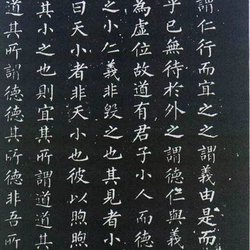 謂仁行而宜之之謂義由是而
乎已無待於外之謂德仁與義
為虛位故道有君子小人而德
之小仁義非毀之也其見者小
曰天小者非天小也彼以煦煦
其小之也則宜其所謂道道其
道其所謂德德其所德非吾